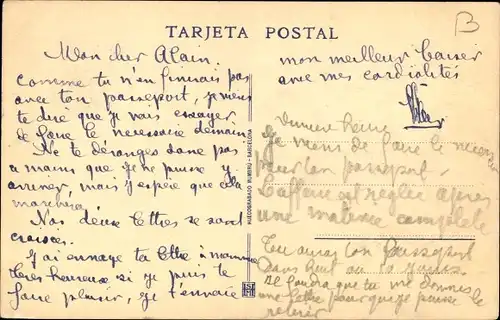 TARJETA POSTAL
B
Mon cher Alain.
comme tu n'en finnais pas
avec ton passeport, je viens
te dire que je vais essayer
de faire le necessaire demain
Ne te déranges donc pas
a moins que je ne puisse y
arriver, mais j'espère que cela
marchera
Nos deux lettres se sont
croisées.
J'ai envoyé ta lettre à maman
tres heureux si je puis te
faire plaisir, je t'envoie
HUECOGRABADO MUMBRÚ - BARCELONA
mon meilleur baiser
avec mes cordialités
dernière heure
Je viens de faire le necessaire
pour ton passeport.
L'affaire est réglée après
une matinée complète
Tu auras ton passeport
dans huit ou 10 jours
Il faudra que tu me donnes
une lettre pour que je puisse le
retirer